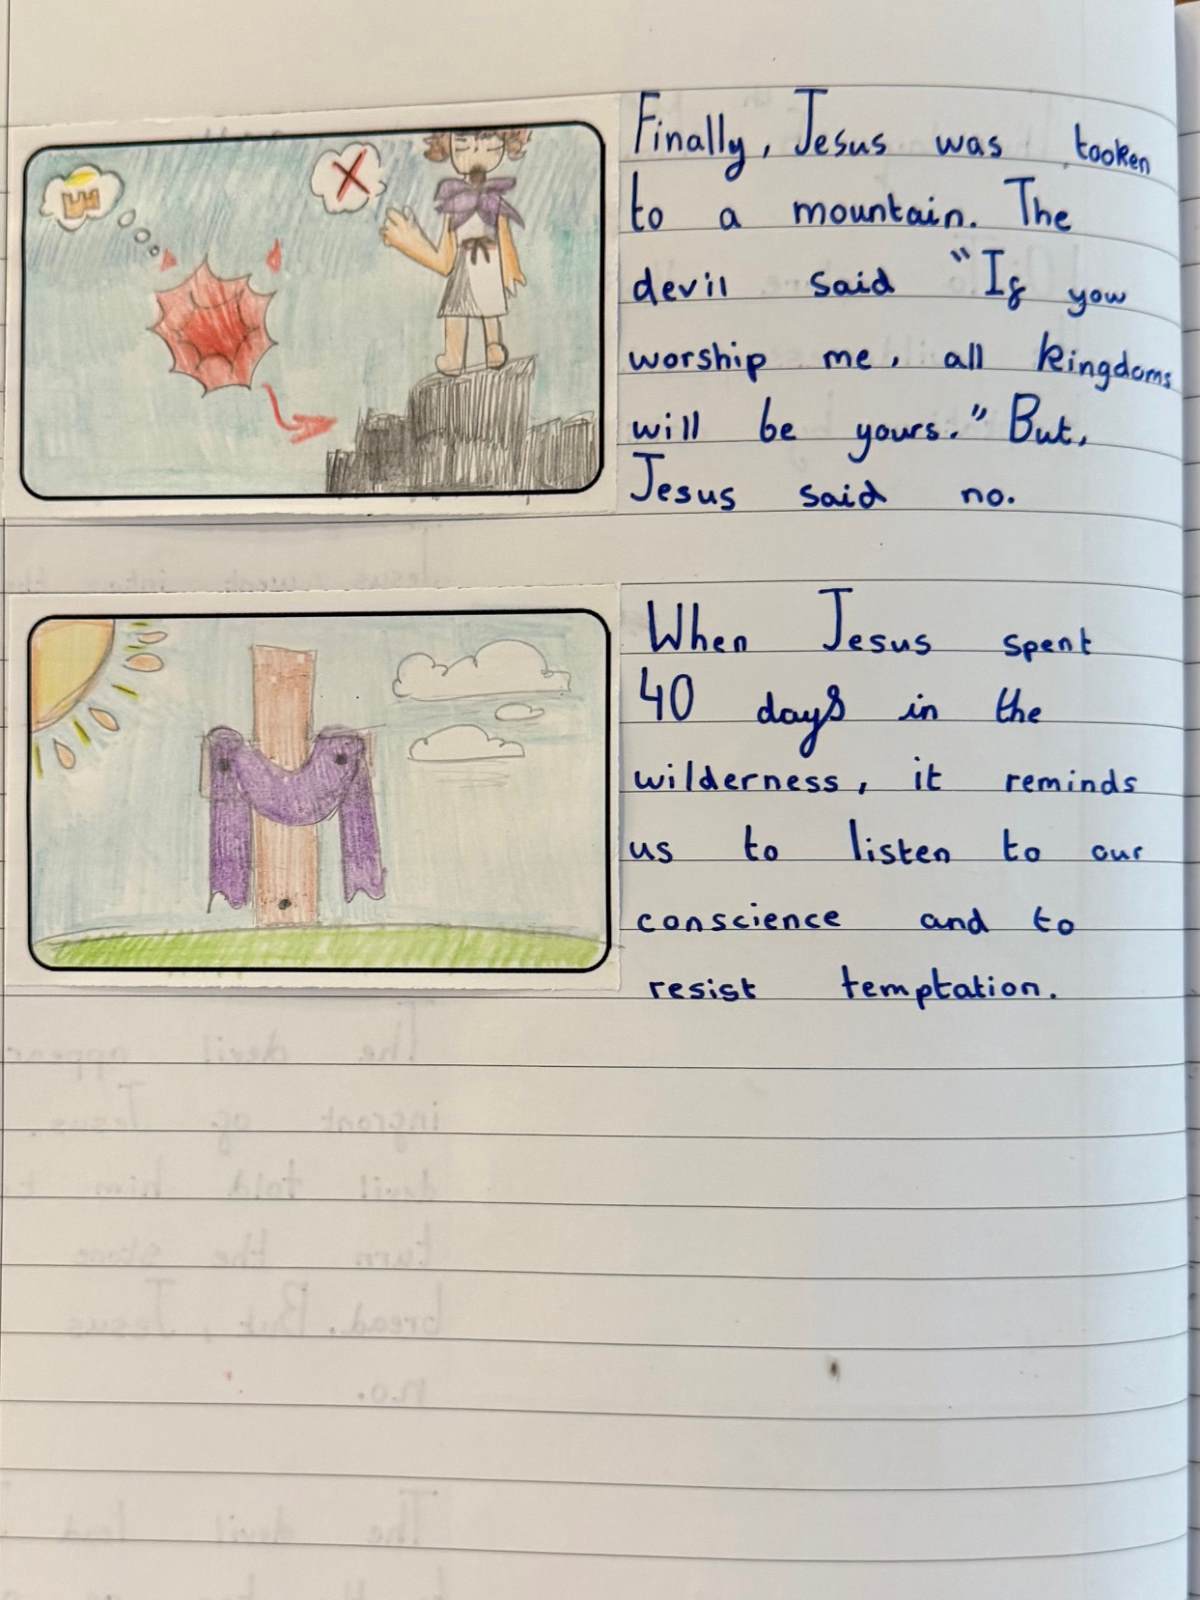 Finally, Jesus was tooken
to a mountain. The
devil said "If you
worship me, all kingdoms
will be yours." But,
Jesus said no.
When Jesus spent
40 days in the
wilderness, it reminds
us to listen to our
conscience and to
resist temptation.